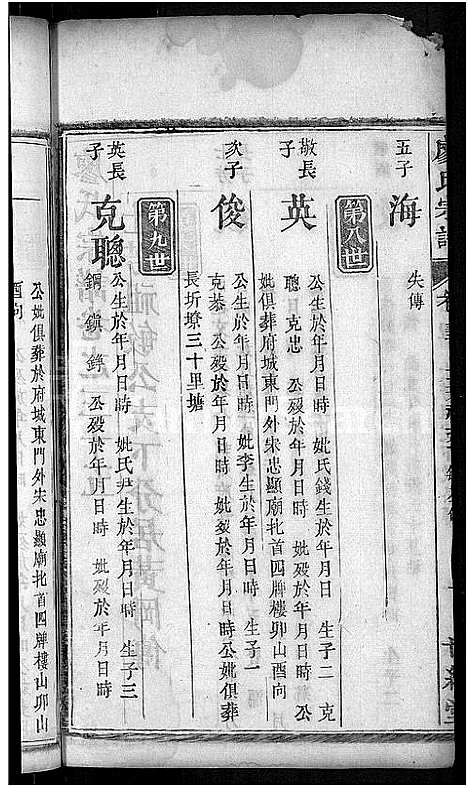 廖氏宗譜
五子
海
失傳
第八世
敬長
子
英
公生於年月日時 妣氏錢生於年月日 生子二 克
聰 克忠 公歿於年月日時 妣歿於年月日時 公
妣俱葬府城東門外宋忠顯廟北首四牌樓卯山酉向
次子
俊
公生於年月日時 妣李生於年月日時 生子一
克恭 公歿於年月日時 妣歿於年月日時公妣俱葬
長圻埁三十里塘
第九世
英長
子
克聰
公生於年月日時 妣氏尹生於年月日時 生子三
銅 鎮 錚 公歿於年月日時 妣歿於年月日時
公妣俱葬於府城東門外宋忠顯廟北首四牌樓山卯山
酉向